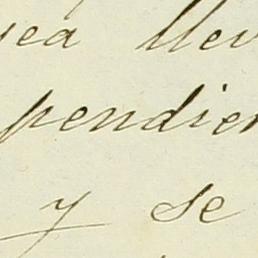 sea llev
pendien
y se